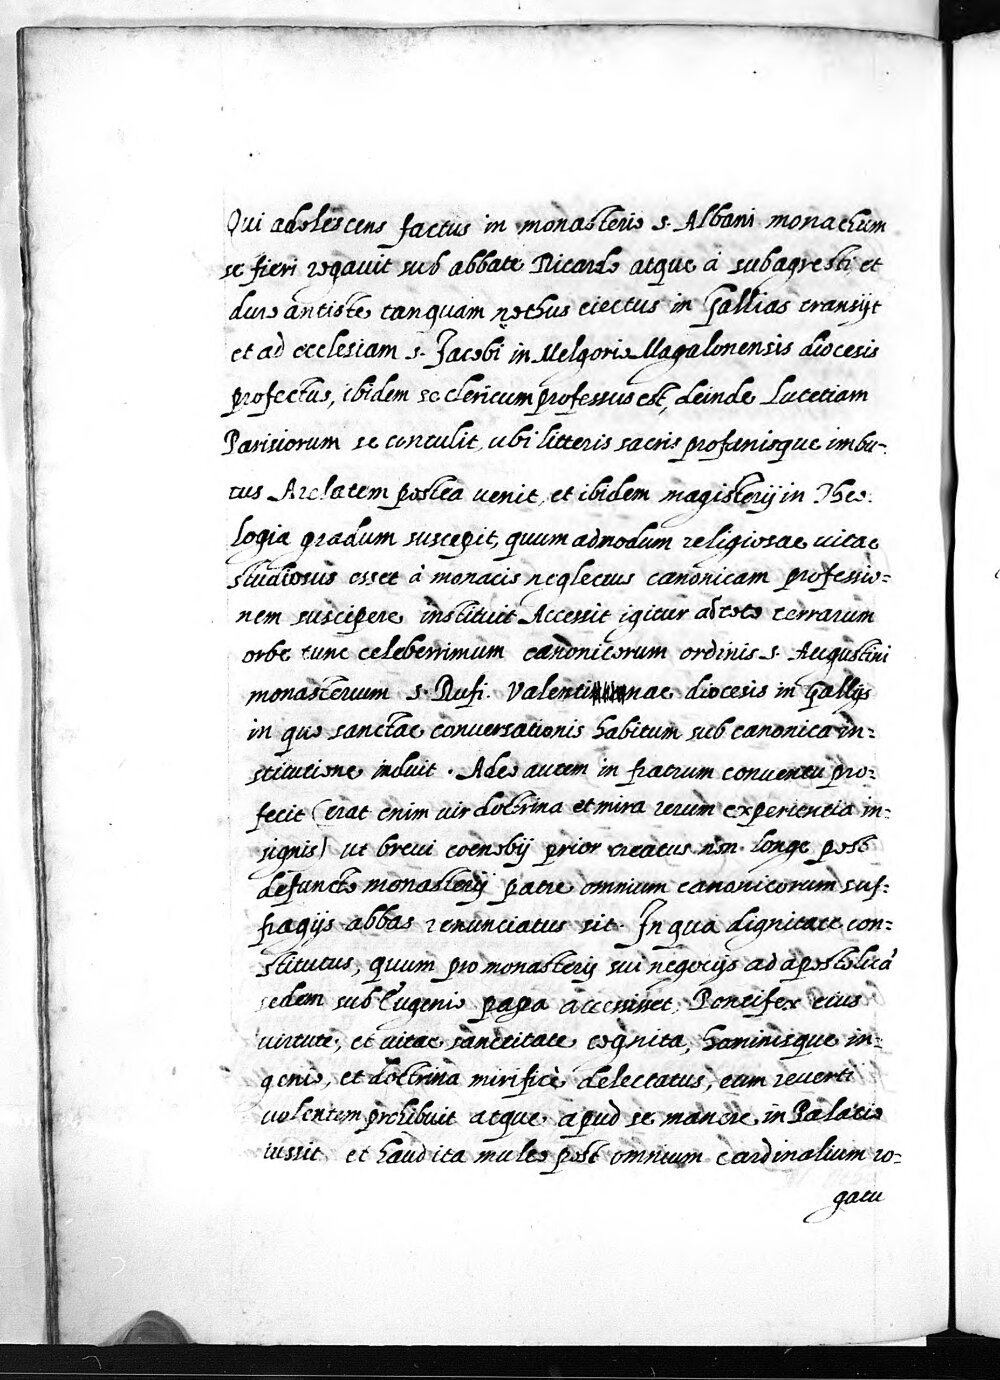 Qui adolescens factus in monasterio s. Albani monachum
se fieri rogavit sub abbate Ricardo atque à subagresti, et
duro antiste tanquam nothus eiectus in Gallias transijt
et ad ecclesiam s. Jacobi in Melgorio Magalonensis diocesis
profectus, ibidem se clericum professus est, deinde Lucetiam
Parisiorum se contulit, ubi litteris sacris profanisque imbu-
tus Arelatem postea venit, et ibidem magisterij in Theo-
logia gradum suscepit, quum admodum religiosae vitae
studiosus esset à monacis neglectus canonicam professio=
nem suscipere instituit Accessit igitur ad toto terrarum
orbe tunc celeberrimum canonicorum ordinis s. Augustini
monasterium s. Rufi. Valentinae diocesis in Gallijs
in quo sanctae conversationis habitum sub canonica in=
stitutione induit. Adeo autem in fratrum conventu pro=
fecit (erat enim vir doctrina et mira rerum experientia in=
signis) ut brevi coenobij prior creatus non longe post
defuncto monasterij patre omnium canonicorum suf=
fragijs abbas renunciatus sit. In qua dignitate con=
stitutus, quum pro monasterij sui negocijs ad apostolicã
sedem sub Eugenio papa accessisset, Pontifex eius
virtute, et vitae sanctitate cognita, hominisque in=
genio, et doctrina mirificè delectatus, eum reverti
volentem prohibuit atque apud se manere in Palatio
iussit, et haud ita multo post omnium cardinalium ro=
gatu